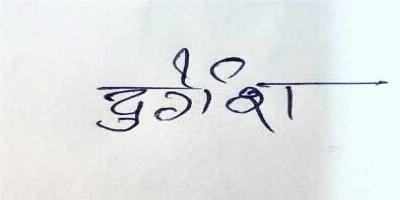 दुर्गेश